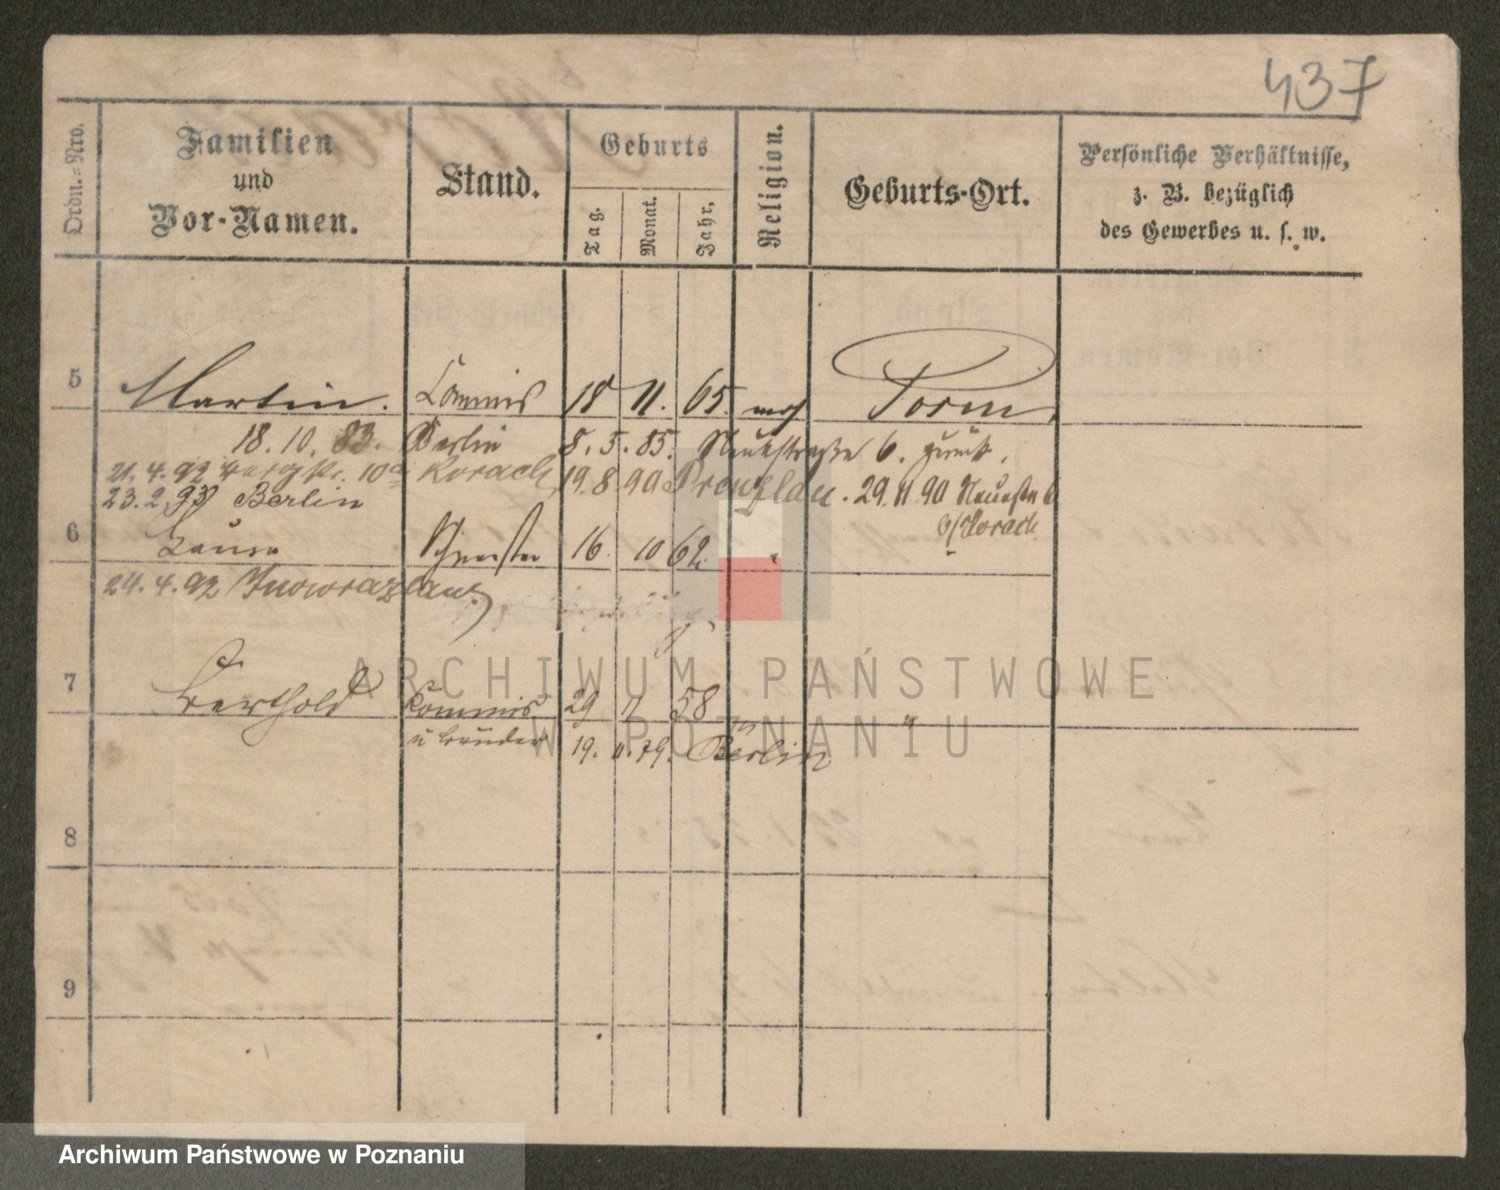 437
Ordn.-Nro.
Familien
und
Vor-Namen.
Stand.
Geburts
Tag.
Monat.
Jahr.
Religion.
Geburts-Ort.
Persönliche Verhältnisse,
z. B. bezüglich
des Gewerbes u. s. w.
5 Martin. Commis 18 11. 65. mos
18. 10. 83. Berlin 8. 5. 85. 6. zurück.
21. 4. 92 10a Korach 19. 8. 90 Prenzlau. 29. 11. 90
23. 2. 93 Berlin
b/Korach
6 Laura Schwester 16. 10 62. "
24. 4. 92 Inowrazlaw.
7 Berthold Commis 29 11 58 "
u Bruder 19. 11. 79. Berlin
8
9
ARCHIWUM PAŃSTWOWE
W POZNANIU
Archiwum Państwowe w Poznaniu